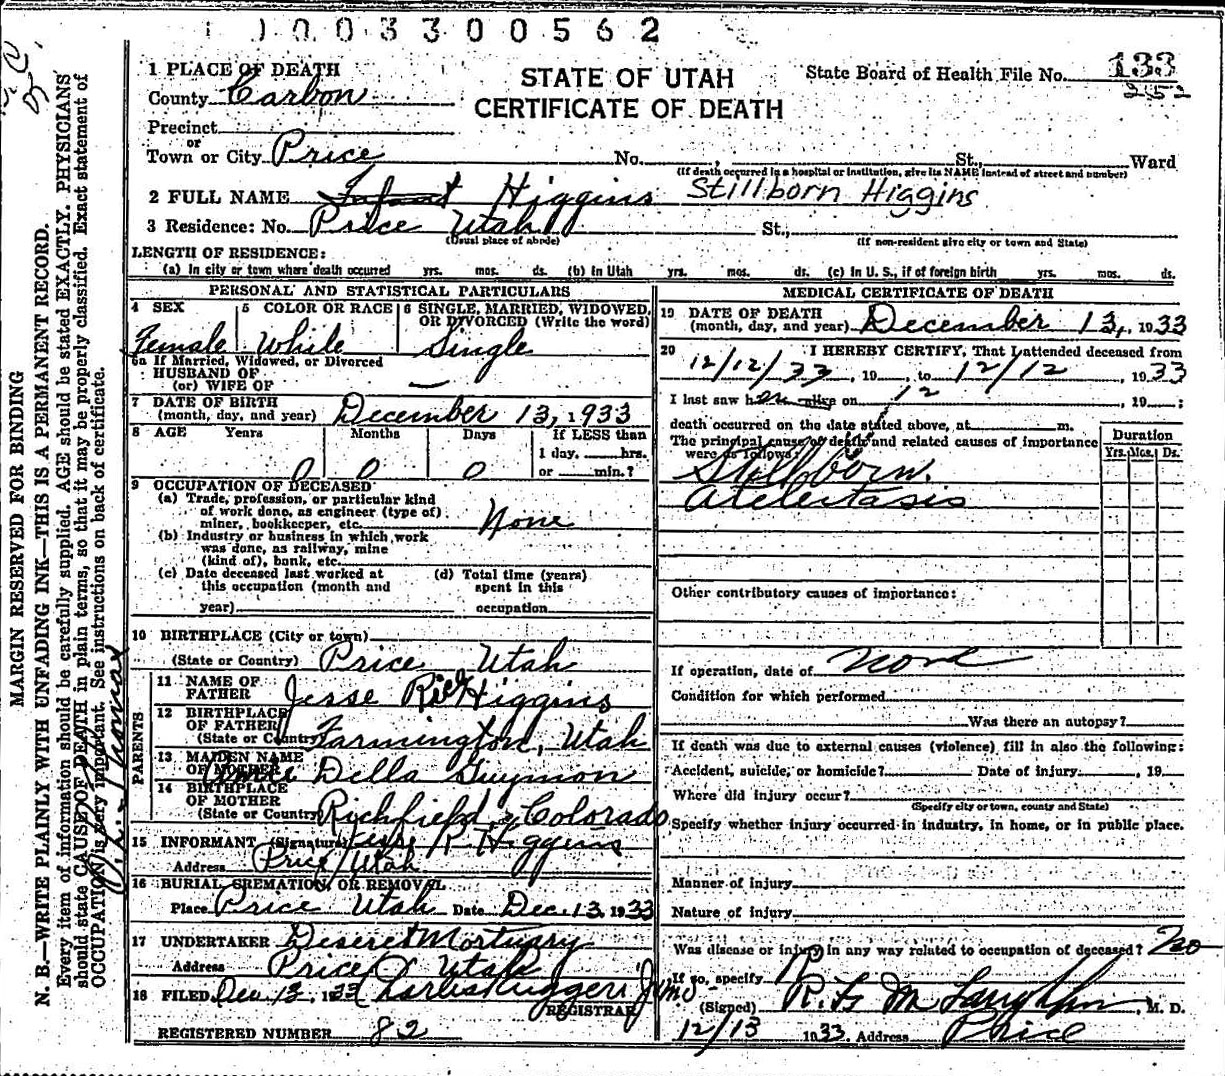 1003300562
1 PLACE OF DEATH
STATE OF UTAH
CERTIFICATE OF DEATH
State Board of Health File No. 133
252
County Carbon
Precinct
or
Town or City Price No. , St., Ward
(If death occurred in a hospital or institution, give its NAME instead of street and number)
2 FULL NAME Infant Higgins Stillborn Higgins
3 Residence: No. Price Utah St.,
(Usual place of abode) (If non-resident give city or town and State)
LENGTH OF RESIDENCE:
(a) In city or town where death occurred yrs. mos. ds. (b) In Utah yrs. mos. ds. (c) In U. S., if of foreign birth yrs. mos. ds.
PERSONAL AND STATISTICAL PARTICULARS
4 SEX 5 COLOR OR RACE 6 SINGLE, MARRIED, WIDOWED,
OR DIVORCED (Write the word)
Female White Single
6a If Married, Widowed, or Divorced
HUSBAND OF
(or) WIFE OF —
7 DATE OF BIRTH
(month, day, and year) December 13, 1933
8 AGE Years Months Days If LESS than
1 day, hrs.
0 0 0 or min.?
9 OCCUPATION OF DECEASED
(a) Trade, profession, or particular kind
of work done, as engineer (type of)
miner, bookkeeper, etc. None
(b) Industry or business in which work
was done, as railway, mine
(kind of), bank, etc.
(c) Date deceased last worked at (d) Total time (years)
this occupation (month and spent in this
year) occupation
10 BIRTHPLACE (City or town)
(State or Country) Price Utah
PARENTS
11 NAME OF
FATHER Jesse Higgins
12 BIRTHPLACE
OF FATHER
(State or Country) Farmington, Utah
13 MAIDEN NAME
OF MOTHER Della Guymon
14 BIRTHPLACE
OF MOTHER
(State or Country) Richfield, Colorado
15 INFORMANT (Signature) Jesse R. Higgins
Address Price, Utah
16 BURIAL, CREMATION, OR REMOVAL
Place Price Utah Date Dec. 13, 1933
17 UNDERTAKER Deseret Mortuary
Address Price, Utah
18 FILED Dec 13, 1933 Charles Ruggeri
REGISTRAR
REGISTERED NUMBER 82
MEDICAL CERTIFICATE OF DEATH
19 DATE OF DEATH
(month, day, and year) December 13, 1933
20 I HEREBY CERTIFY, That I attended deceased from
12/12/33, 19 , to 12/12, 1933
I last saw her alive on 12, 19 ;
death occurred on the date stated above, at m.
The principal cause of death and related causes of importance
were as follows:
Duration
Yrs. Mos. Ds.
Stillborn.
atelectasis
Other contributory causes of importance:
If operation, date of none
Condition for which performed
Was there an autopsy?
If death was due to external causes (violence) fill in also the following:
Accident, suicide, or homicide? Date of injury , 19
Where did injury occur?
(Specify city or town, county and State)
Specify whether injury occurred in industry, in home, or in public place.
Manner of injury
Nature of injury
Was disease or injury in any way related to occupation of deceased? no
If so, specify
(Signed) , M. D.
12/13 1933 Address Price
MARGIN RESERVED FOR BINDING
N. B.—WRITE PLAINLY WITH UNFADING INK—THIS IS A PERMANENT RECORD.
Every item of information should be carefully supplied. AGE should be stated EXACTLY. PHYSICIANS
should state CAUSE OF DEATH in plain terms, so that it may be properly classified. Exact statement of
OCCUPATION is very important. See instructions on back of certificate.